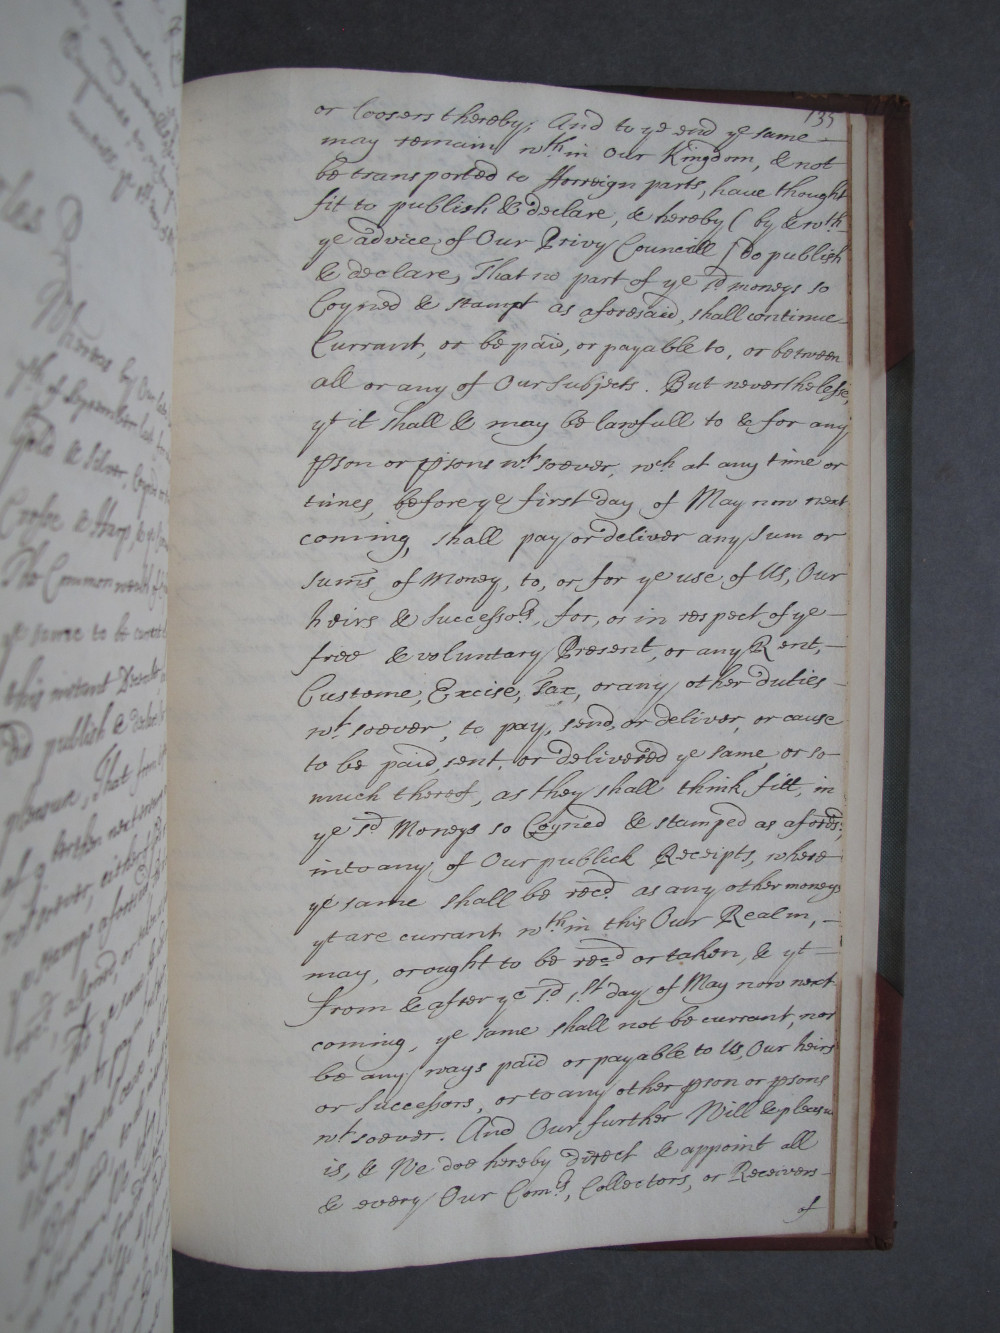 135
or loosers thereby; And to ye end ye same
may remain wth in Our Kingdom, & not
be transported to fforreign parts, have thought
fit to publish & declare, & hereby (by & wth
ye advice of Our Privy Councill) do publish
& declare, That no part of ye sd moneys so
Coyned & stampt as aforesaid, shall continue
Currant, or be paid, or payable to, or between
all or any of Our Subjects. But neverthelesse,
yt it shall & may be lawfull to & for any
pson or psons wt soever, wch at any time or
times, before ye first day of May now next
coming, shall pay or deliver any Sum or
Sums of Money, to, or for ye use of Us, Our
heirs & Successors, for, or in respect of ye
free & voluntary Present, or any Rent,
Custome, Excise, Tax, or any other duties
wt soever, to pay, send, or deliver, or cause
to be paid, sent, or delivered ye same, or so
much thereof, as they shall think fitt, in
ye sd Moneys so Coyned & stamped as aforesd,
into any of Our publick Receipts, where
ye same shall be recd as any other moneys
yt are currant wth in this Our Realm,
may, or ought to be recd or taken, & yt
from & after ye sd 1st day of May now next
coming, ye same shall not be currant, nor
be any ways paid or payable to Us, Our heirs
or Successors, or to any other pson or psons
wt soever. And Our further Will & pleasure
is, & We doe hereby direct & appoint all
& every Our Comrs, Collectors, or Receivers
of